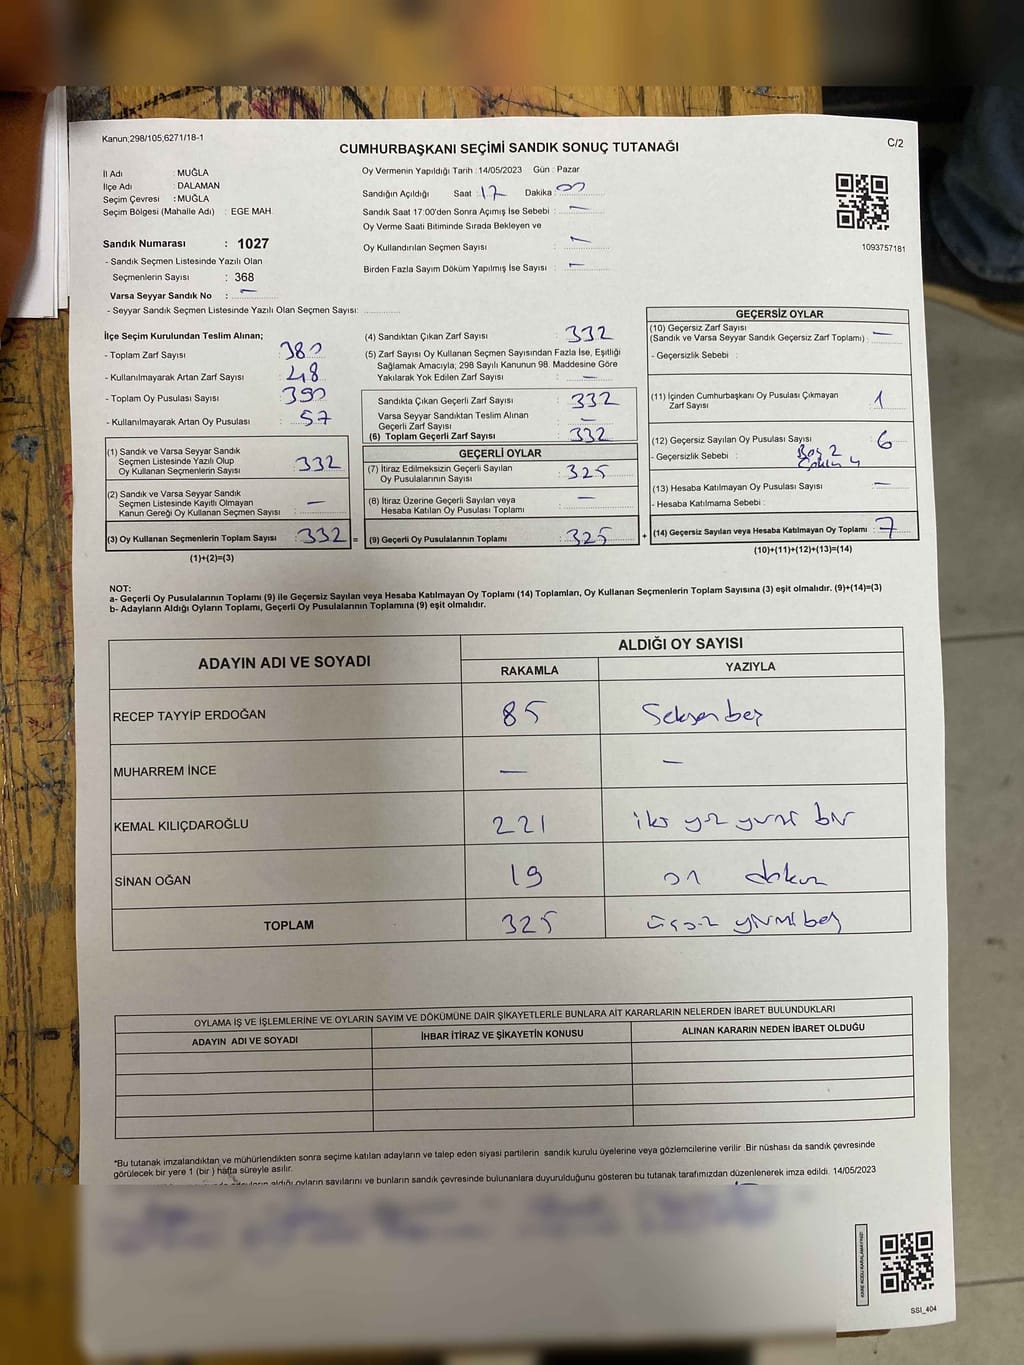 Kanun,298/105,6271/18-1
C/2
CUMHURBAŞKANI SEÇİMİ SANDIK SONUÇ TUTANAĞI
İl Adı : MUĞLA
İlçe Adı : DALAMAN
Seçim Çevresi : MUĞLA
Seçim Bölgesi (Mahalle Adı) : EGE MAH.
Oy Vermenin Yapıldığı Tarih : 14/05/2023 Gün : Pazar
Sandığın Açıldığı Saat : 17 Dakika : 00
Sandık Saat 17:00'den Sonra Açımış İse Sebebi : —
Oy Verme Saati Bitiminde Sırada Bekleyen ve
Oy Kullandırılan Seçmen Sayısı : —
Birden Fazla Sayım Döküm Yapılmış İse Sayısı : —
1093757181
Sandık Numarası : 1027
- Sandık Seçmen Listesinde Yazılı Olan
Seçmenlerin Sayısı : 368
Varsa Seyyar Sandık No : —
- Seyyar Sandık Seçmen Listesinde Yazılı Olan Seçmen Sayısı:
İlçe Seçim Kurulundan Teslim Alınan;
- Toplam Zarf Sayısı : 380
- Kullanılmayarak Artan Zarf Sayısı : 48
- Toplam Oy Pusulası Sayısı : 390
- Kullanılmayarak Artan Oy Pusulası : 57
(1) Sandık ve Varsa Seyyar Sandık
Seçmen Listesinde Yazılı Olup
Oy Kullanan Seçmenlerin Sayısı : 332
(2) Sandık ve Varsa Seyyar Sandık
Seçmen Listesinde Kayıtlı Olmayan
Kanun Gereği Oy Kullanan Seçmen Sayısı : —
(3) Oy Kullanan Seçmenlerin Toplam Sayısı : 332 =
(1)+(2)=(3)
(4) Sandıktan Çıkan Zarf Sayısı : 332
(5) Zarf Sayısı Oy Kullanan Seçmen Sayısından Fazla İse, Eşitliği
Sağlamak Amacıyla; 298 Sayılı Kanunun 98. Maddesine Göre
Yakılarak Yok Edilen Zarf Sayısı : —
Sandıkta Çıkan Geçerli Zarf Sayısı : 332
Varsa Seyyar Sandıktan Teslim Alınan
Geçerli Zarf Sayısı : —
(6) Toplam Geçerli Zarf Sayısı : 332
GEÇERLİ OYLAR
(7) İtiraz Edilmeksizin Geçerli Sayılan
Oy Pusulalarının Sayısı : 325
(8) İtiraz Üzerine Geçerli Sayılan veya
Hesaba Katılan Oy Pusulası Toplamı : —
(9) Geçerli Oy Pusulalarının Toplamı : 325 +
GEÇERSİZ OYLAR
(10) Geçersiz Zarf Sayısı
(Sandık ve Varsa Seyyar Sandık Geçersiz Zarf Toplamı) : —
- Geçersizlik Sebebi :
(11) İçinden Cumhurbaşkanı Oy Pusulası Çıkmayan
Zarf Sayısı : 1
(12) Geçersiz Sayılan Oy Pusulası Sayısı : 6
- Geçersizlik Sebebi : Boş 2
(13) Hesaba Katılmayan Oy Pusulası Sayısı : —
- Hesaba Katılmama Sebebi :
(14) Geçersiz Sayılan veya Hesaba Katılmayan Oy Toplamı : 7
(10)+(11)+(12)+(13)=(14)
NOT:
a- Geçerli Oy Pusulalarının Toplamı (9) ile Geçersiz Sayılan veya Hesaba Katılmayan Oy Toplamı (14) Toplamları, Oy Kullanan Seçmenlerin Toplam Sayısına (3) eşit olmalıdır. (9)+(14)=(3)
b- Adayların Aldığı Oyların Toplamı, Geçerli Oy Pusulalarının Toplamına (9) eşit olmalıdır.
ADAYIN ADI VE SOYADI
ALDIĞI OY SAYISI
RAKAMLA YAZIYLA
RECEP TAYYİP ERDOĞAN 85 Seksen beş
MUHARREM İNCE — —
KEMAL KILIÇDAROĞLU 221 iki yüz yirmi bir
SİNAN OĞAN 19 on dokuz
TOPLAM 325 üçyüz yirmi beş
OYLAMA İŞ VE İŞLEMLERİNE VE OYLARIN SAYIM VE DÖKÜMÜNE DAİR ŞİKAYETLERLE BUNLARA AİT KARARLARIN NELERDEN İBARET BULUNDUKLARI
ADAYIN ADI VE SOYADI İHBAR İTİRAZ VE ŞİKAYETİN KONUSU ALINAN KARARIN NEDEN İBARET OLDUĞU
*Bu tutanak imzalandıktan ve mühürlendikten sonra seçime katılan adayların ve talep eden siyasi partilerin sandık kurulu üyelerine veya gözlemcilerine verilir .Bir nüshası da sandık çevresinde
görülecek bir yere 1 (bir ) hafta süreyle asılır.
aldığı oyların sayılarını ve bunların sandık çevresinde bulunanlara duyurulduğunu gösteren bu tutanak tarafımızdan düzenlenerek imza edildi. 14/05/2023
KARE KODU KARALAMAYINIZ!
SSI_404